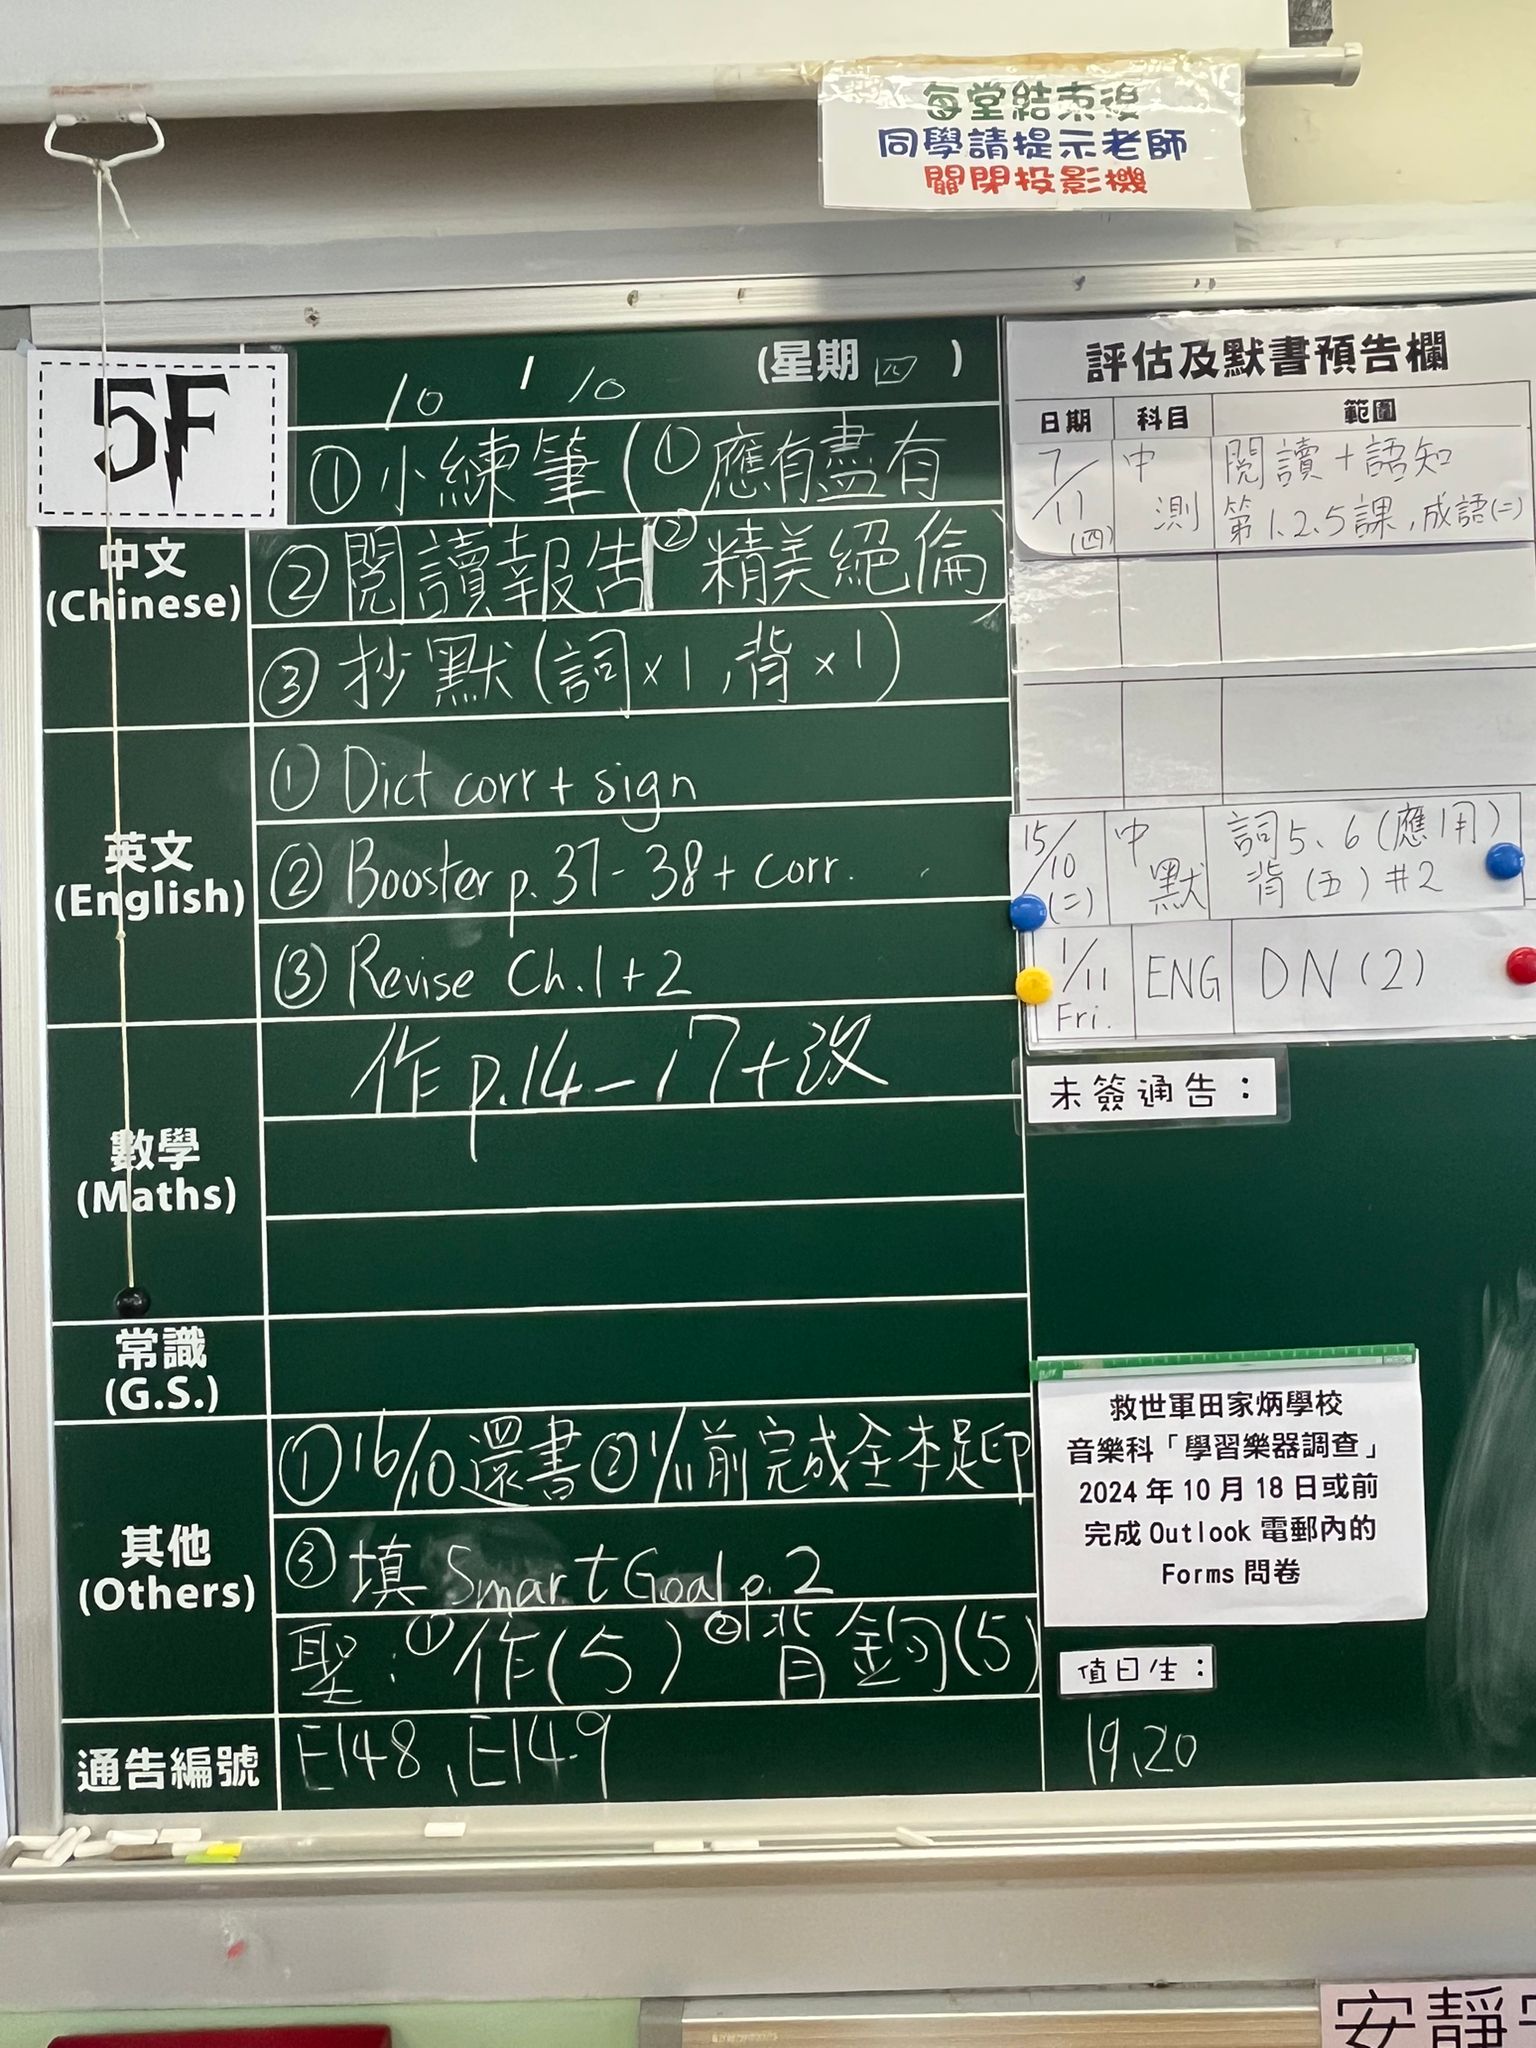 每堂結束後
同學請提示老師
關閉投影機
5F
10 / 10 (星期四)
中文
(Chinese)
①小練筆(①應有盡有
②閱讀報告 ②精美絕倫)
③抄默(詞×1,背×1)
英文
(English)
① Dict corr + sign
② Booster p.37-38 + corr.
③ Revise Ch.1+2
數學
(Maths)
作p.14-17+改
常識
(G.S.)
其他
(Others)
①16/10還書②1/11前完成全本足印
③填 Smart Goal p.2
聖:①作(5) ②背金句(5)
通告編號
E148、E149
評估及默書預告欄
日期 科目 範圍
7/11(四) 中測 閱讀+語知
第1.2.5課,成語(二)
15/10(二) 中默 詞5、6(應用)
背(五)#2
1/11 Fri. ENG DN(2)
未簽通告:
救世軍田家炳學校
音樂科「學習樂器調查」
2024年10月18日或前
完成Outlook電郵內的
Forms問卷
值日生:
19、20
安靜